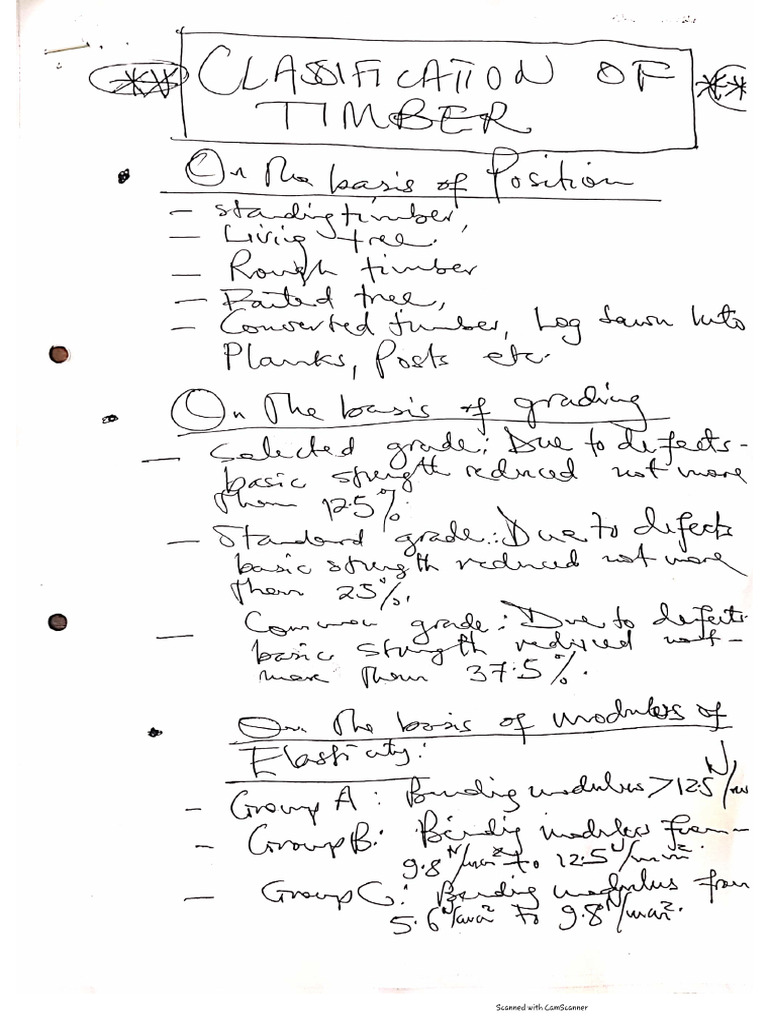 CLASSIFICATION OF
TIMBER
On the basis of Position
- Standing timber,
- Living tree.
- Rough timber
- tree,
- Converted timber, Log sawn into
Planks, Posts etc.
On the basis of grading
- Selected grade: Due to defects-
basic strength reduced not more
than 12.5%.
- Standard grade: Due to defects
basic strength reduced not more
than 25%.
- Common grade: Due to defects
basic strength reduced not-
more than 37.5%.
On the basis of modulus of
Elasticity:
- Group A: Bending modulus > 12.5 N/
- Group B: Bending modulus from-
9.8 N/mm² to 12.5 N/mm².
- Group C: Bending modulus from
5.6 N/mm² to 9.8 N/mm².
Scanned with CamScanner